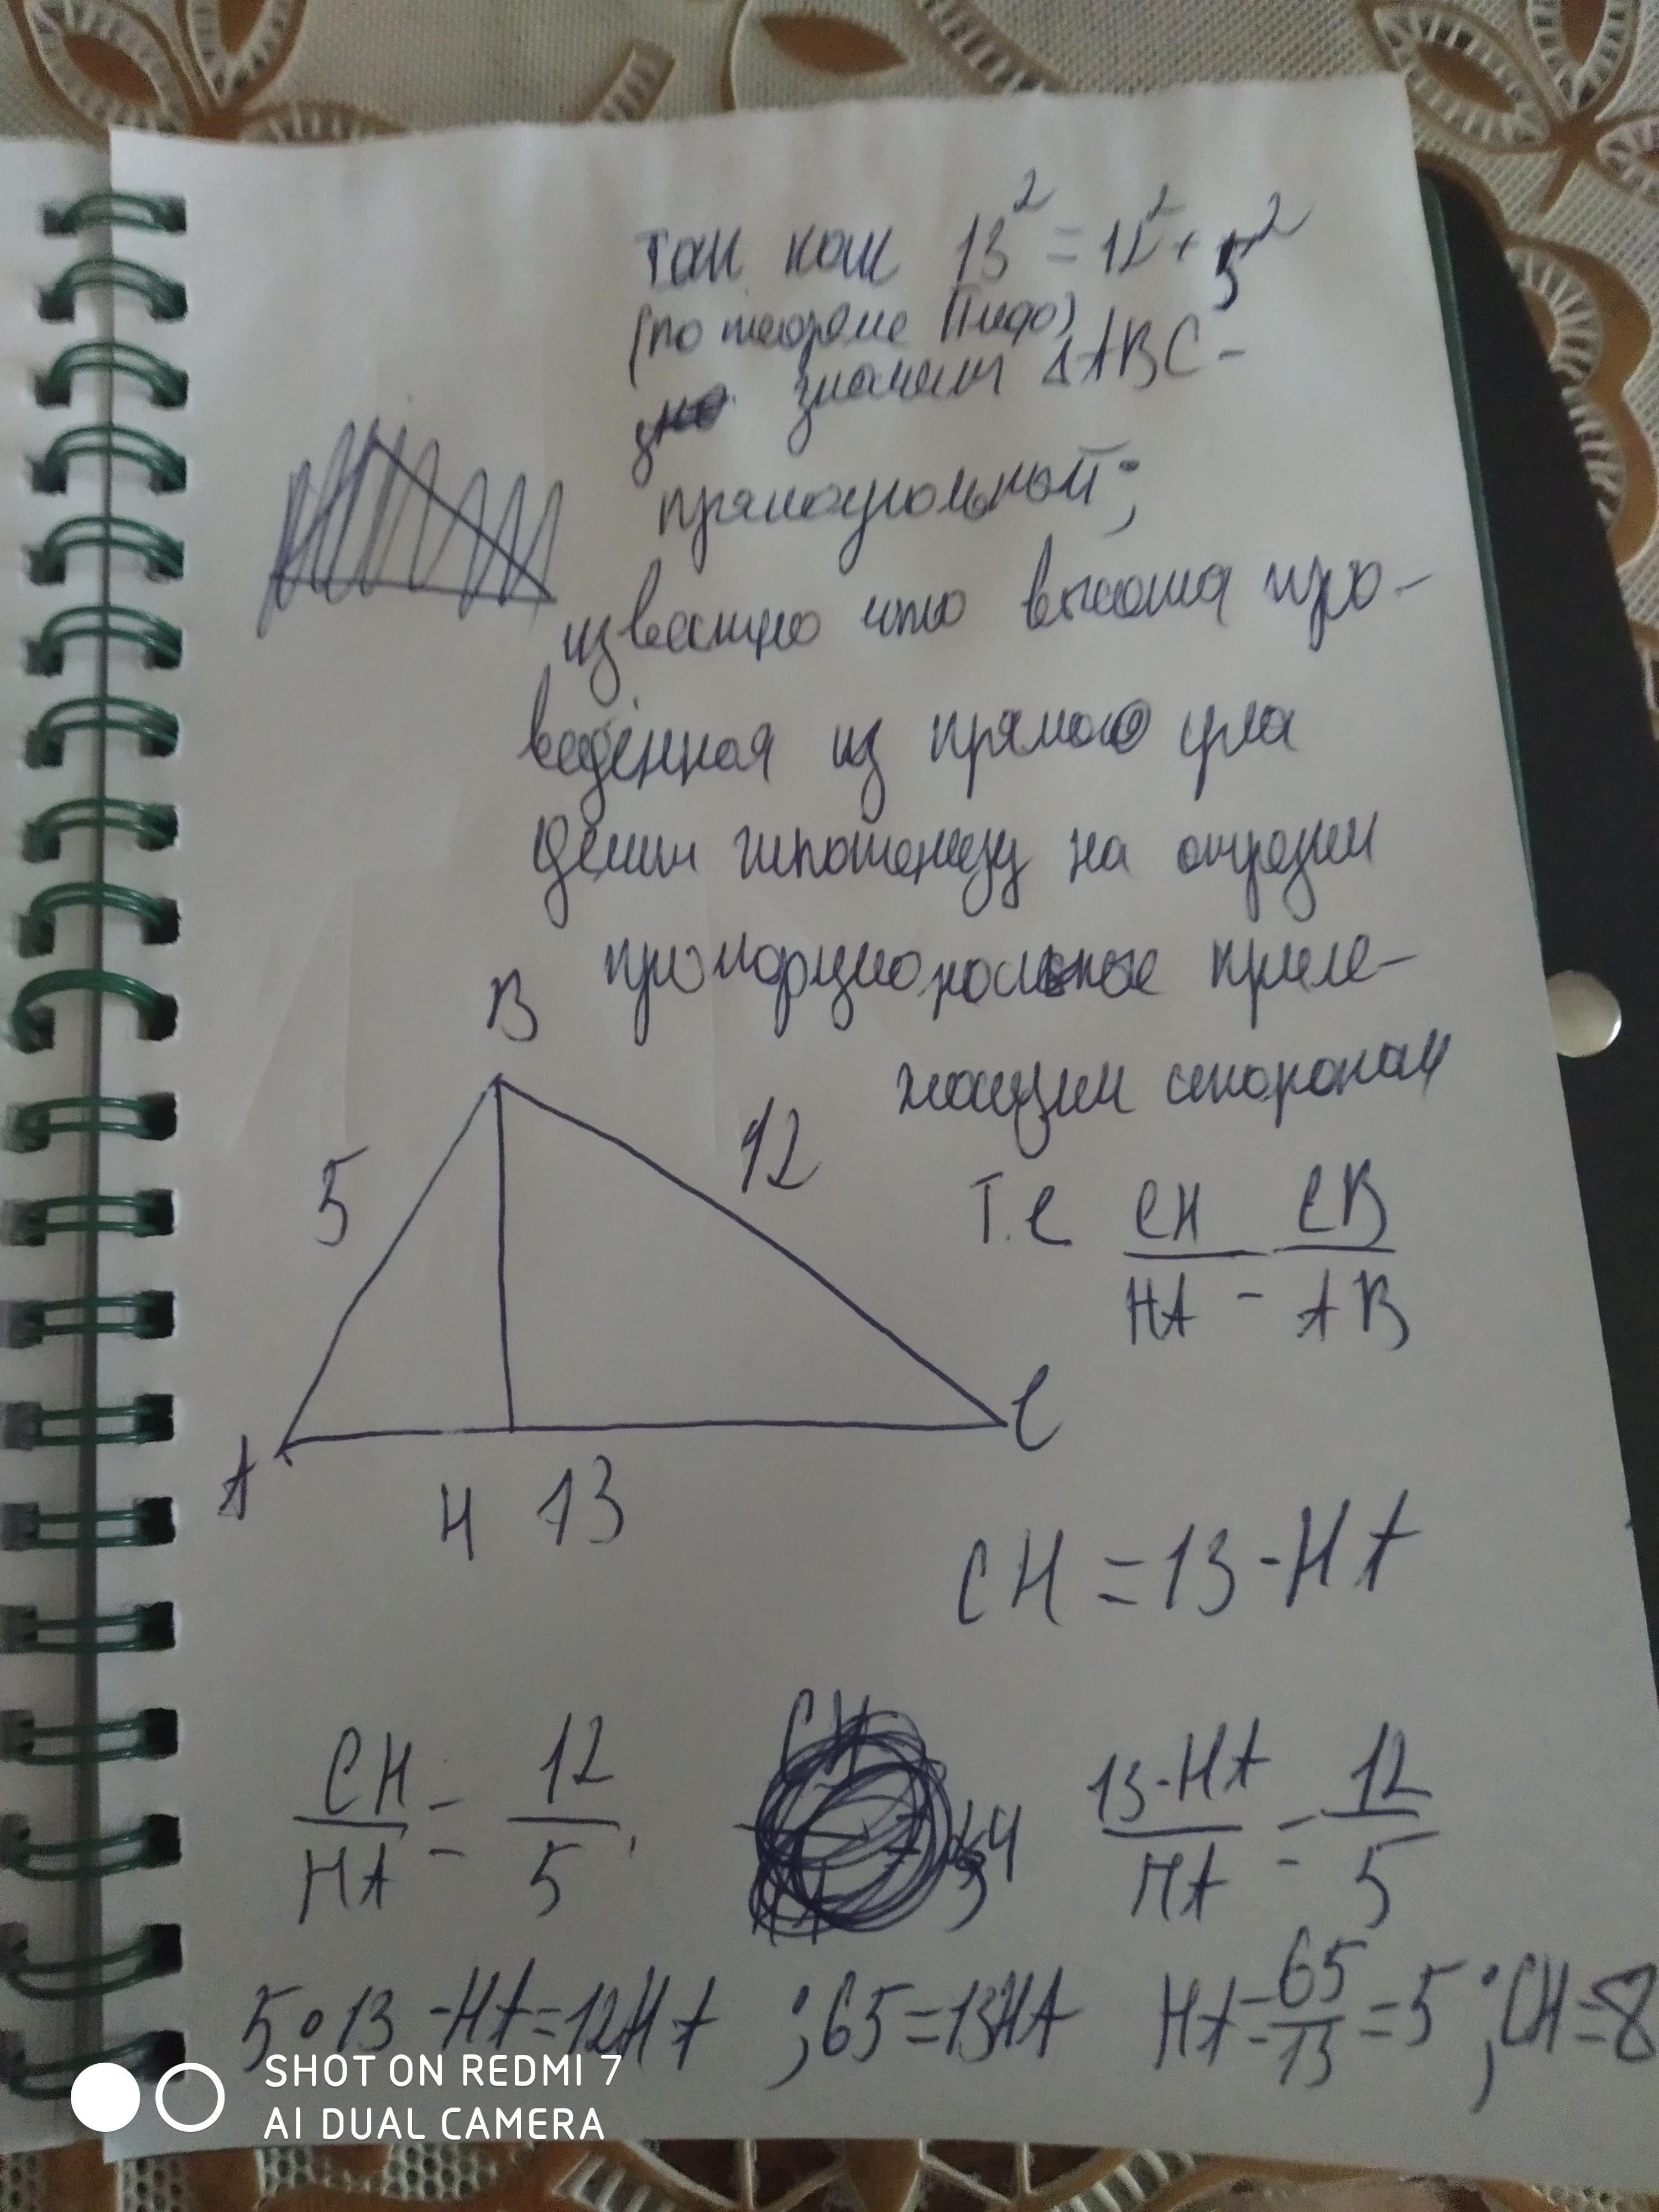 так как 13² = 12² + 5²
(по теореме Пифо)
значит ΔABC -
прямоугольный;
известно что высота про-
ведённая из прямого угла
делит гипотенузу на отрезки
пропорциональные приле-
жащим сторонам
B
5
12
Т.е CH/HA = CB/AB
A
H
13
C
CH = 13 - HA
CH/HA = 12/5
13-HA/HA = 12/5
5•13 -HA=12HA ; 65=13HA HA=65/13=5 ; CH=8
SHOT ON REDMI 7
AI DUAL CAMERA